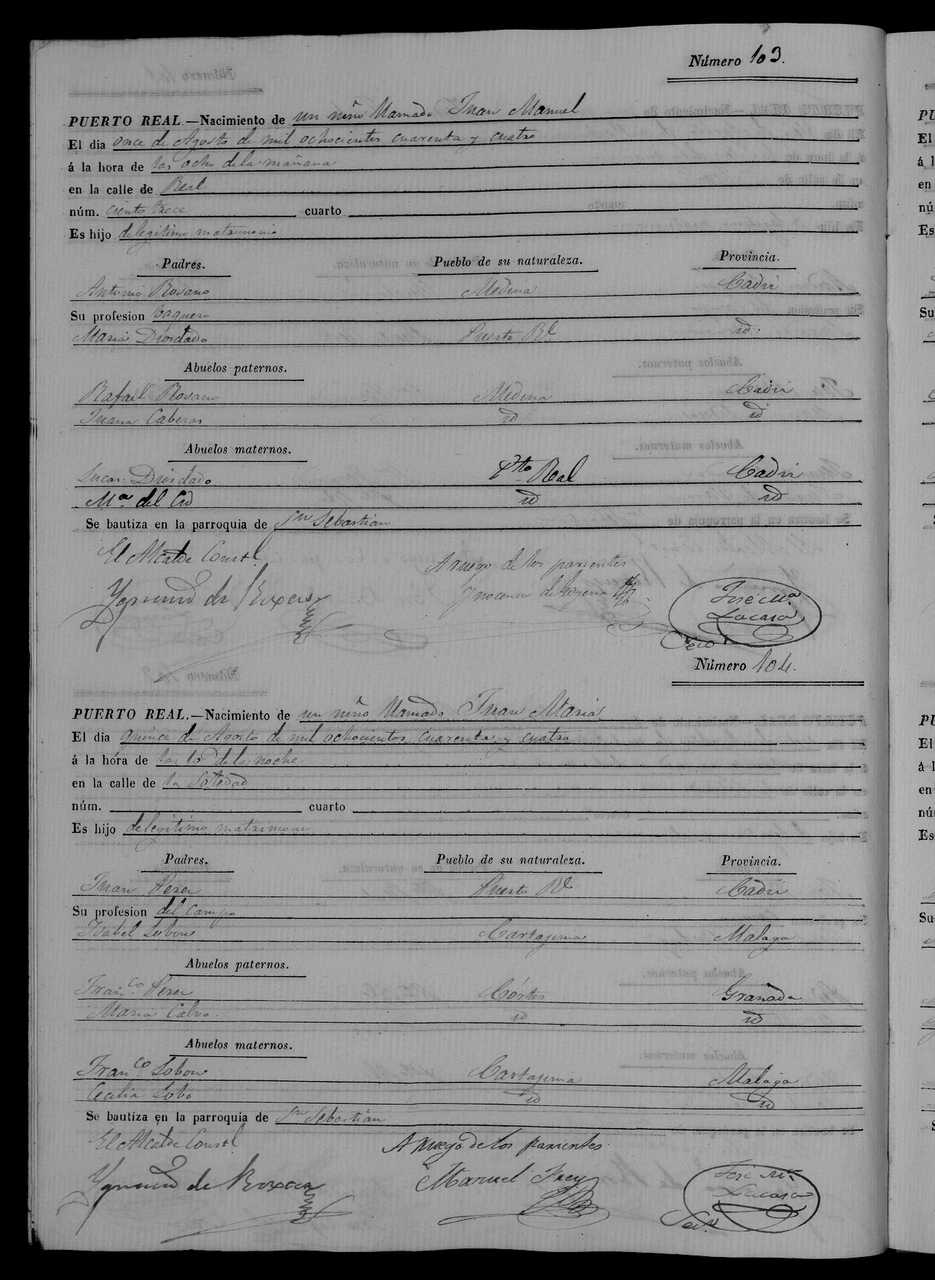 Número 103.
PUERTO REAL.—Nacimiento de un niño llamado Juan Manuel
El dia once de Agosto de mil ochocientos cuarenta y cuatro
á la hora de las ocho de la mañana
en la calle de Real
núm. ciento trece cuarto
Es hijo de legitimo matrimonio
Padres. Pueblo de su naturaleza. Provincia.
Antonio Rosano Medina Cadiz
Su profesion vaquero
Maria Diosdado Puerto Rl id.
Abuelos paternos.
Rafael Rosano Medina Cadiz
Juana Caberas id id
Abuelos maternos.
Juan Diosdado Pto Real Cadiz
Ma del Cid id id
Se bautiza en la parroquia de Sn Sebastian
El Alcalde Constl
A ruego de los parientes
José Ma
Lacasa
Secro
Número 104.
PUERTO REAL.—Nacimiento de un niño llamado Juan Maria
El dia quince de Agosto de mil ochocientos cuarenta y cuatro
á la hóra de las 10 de la noche
en la calle de la Soledad
núm. cuarto
Es hijo de legitimo matrimonio
Padres. Pueblo de su naturaleza. Provincia.
Juan Perez Puerto Rl Cadiz
Su profesion del campo
Isabel Lobon Cartajima Malaga
Abuelos paternos.
Franco Perez Córtes Granada
Maria Calvo id id
Abuelos maternos.
Franco Lobon Cartajima Malaga
Cecilia Lobo id id
Se bautiza en la parroquia de Sn Sebastian
El Alcalde Constl
A ruego de los parientes
Manuel Frey
José Ma
Lacasa
Sec.